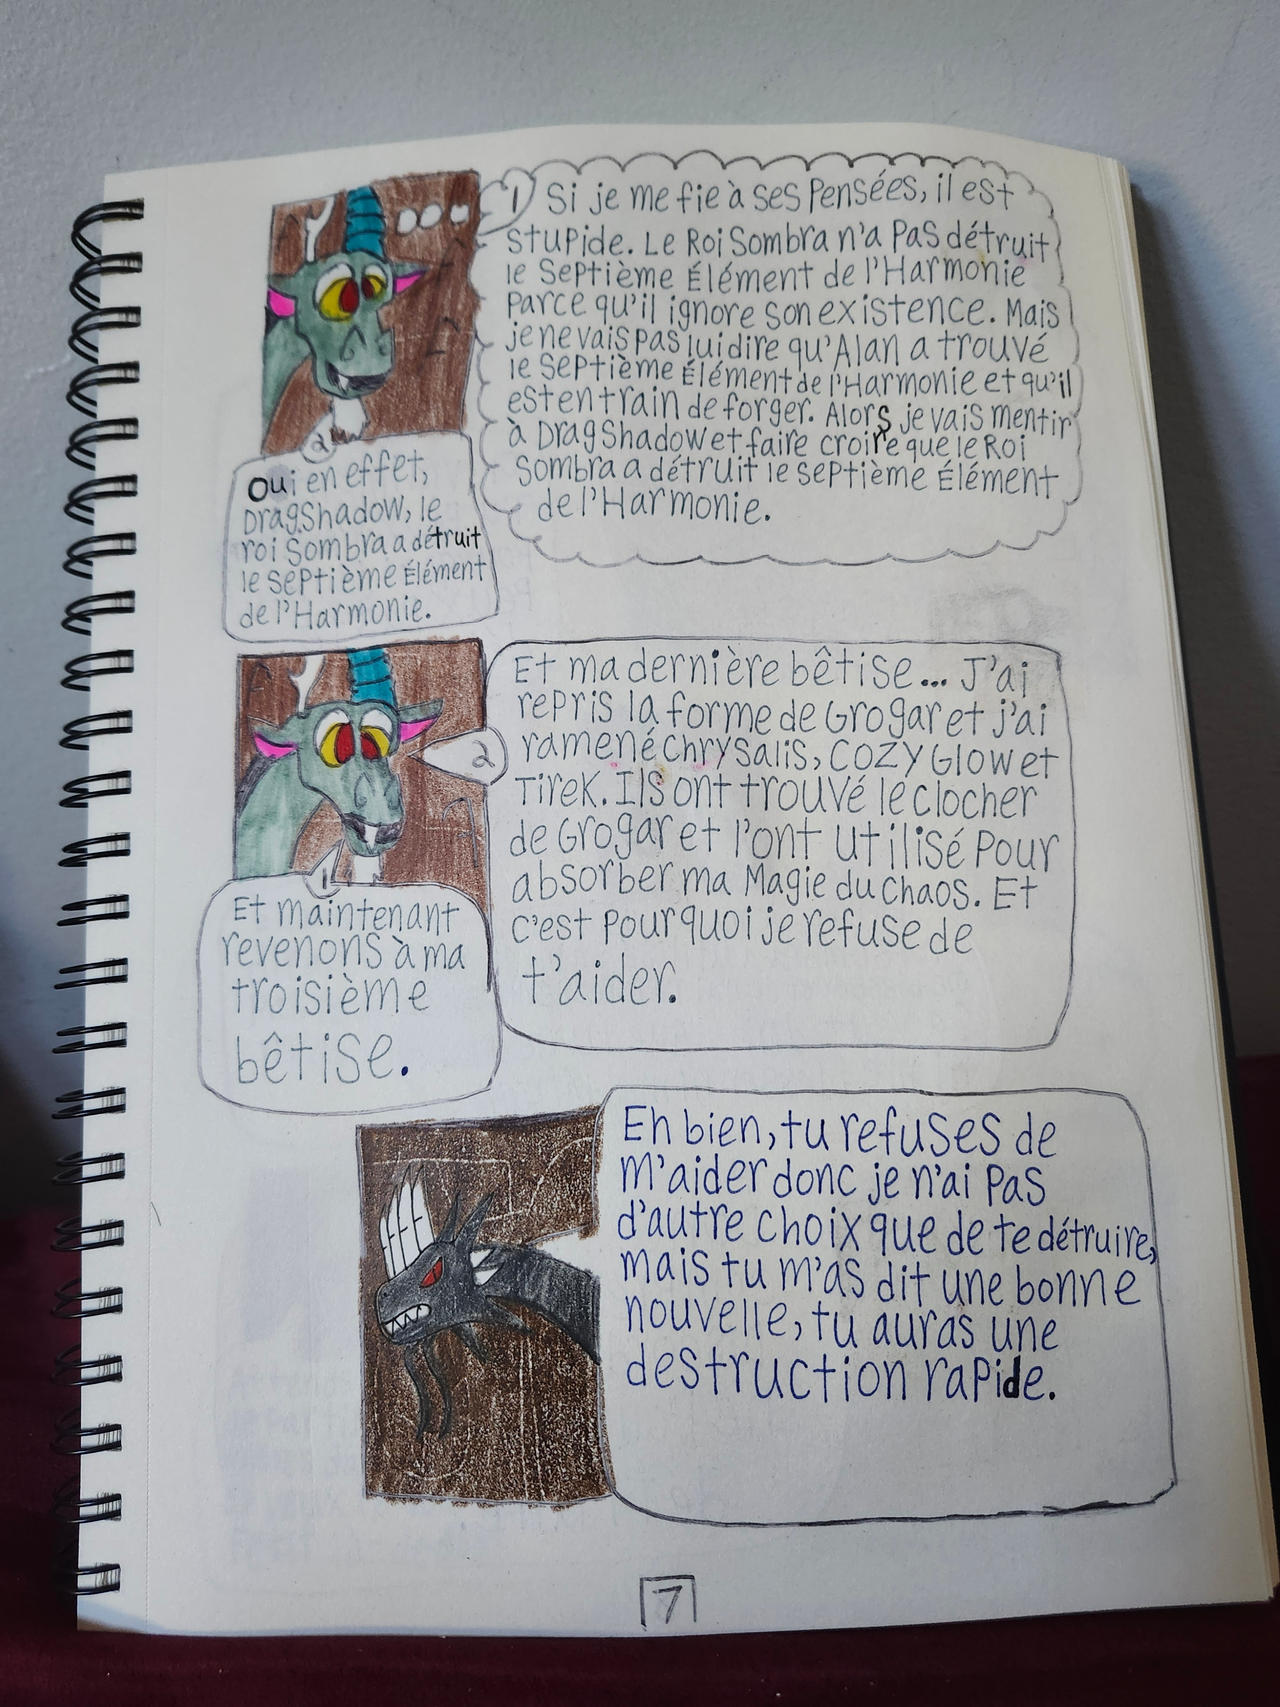 1
Si je me fie à ses pensées, il est
stupide. Le Roi Sombra n'a pas détruit
le Septième Élément de l'Harmonie
parce qu'il ignore son existence. Mais
je ne vais pas lui dire qu'Alan a trouvé
le Septième Élément de l'Harmonie et qu'il
est en train de forger. Alors je vais mentir
à DragShadow et faire croire que le Roi
Sombra a détruit le septième Élément
de l'Harmonie.
2
Oui en effet,
DragShadow, le
roi Sombra a détruit
le septième Élément
de l'Harmonie.
1
Et maintenant
revenons à ma
troisième
bêtise.
2
Et ma dernière bêtise... J'ai
repris la forme de Grogar et j'ai
ramené Chrysalis, Cozy Glow et
Tirek. Ils ont trouvé le clocher
de Grogar et l'ont utilisé pour
absorber ma Magie du chaos. Et
c'est pourquoi je refuse de
t'aider.
Eh bien, tu refuses de
m'aider donc je n'ai pas
d'autre choix que de te détruire,
mais tu m'as dit une bonne
nouvelle, tu auras une
destruction rapide.
7